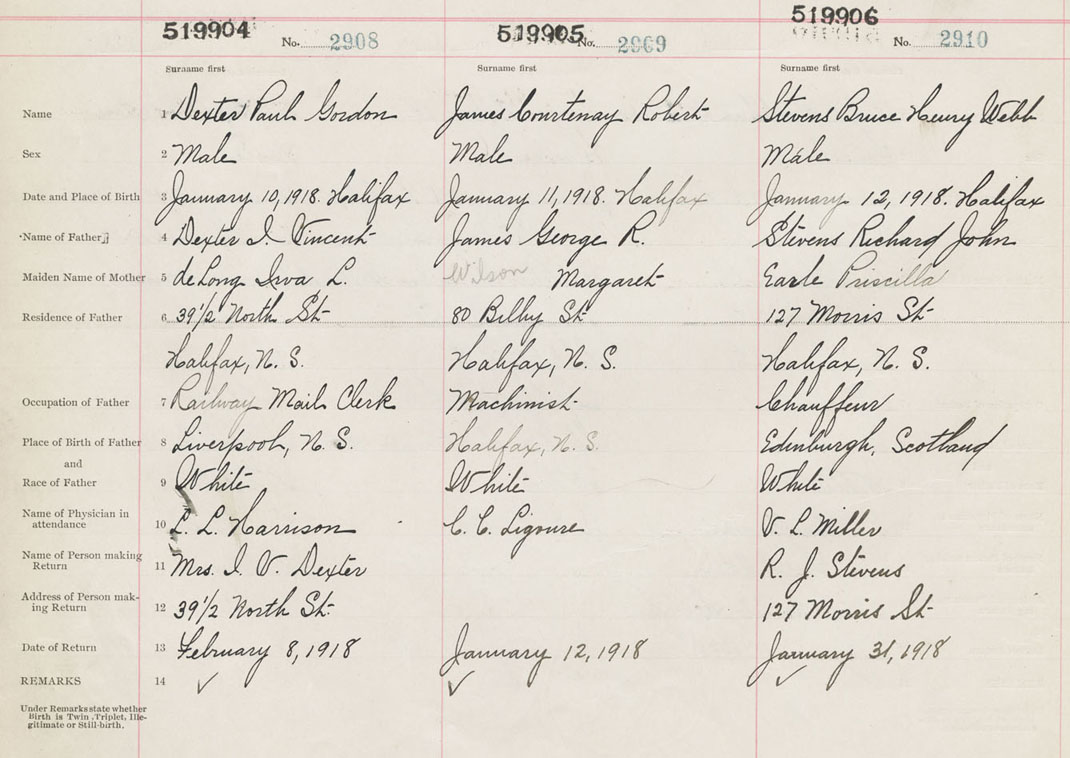 519904 519905 519906
No. 2908 No. 2909 No. 2910
Surname first Surname first Surname first
Name 1 Dexter Paul Gordon James Courtenay Robert Stevens Bruce Henry Webb
Sex 2 Male Male Male
Date and Place of Birth 3 January 10, 1918. Halifax January 11, 1918. Halifax January 12, 1918. Halifax
Name of Father 4 Dexter I. Vincent James George R. Stevens Richard John
Maiden Name of Mother 5 deLong Irva L. Wilson Margaret Earle Priscilla
Residence of Father 6 39 1/2 North St. 80 Bilby St. 127 Morris St.
Halifax, N. S. Halifax, N. S. Halifax, N. S.
Occupation of Father 7 Railway Mail Clerk Machinist Chauffeur
Place of Birth of Father 8 Liverpool, N. S. Halifax, N. S. Edinburgh, Scotland
and
Race of Father 9 White White White
Name of Physician in
attendance 10 L. L. Harrison C. C. Ligoure V. L. Miller
Name of Person making
Return 11 Mrs. I. V. Dexter R. J. Stevens
Address of Person mak-
ing Return 12 39 1/2 North St. 127 Morris St
Date of Return 13 February 8, 1918 January 12, 1918 January 31, 1918
REMARKS 14
Under Remarks state whether
Birth is Twin, Triplet, Ille-
gitimate or Still-birth.